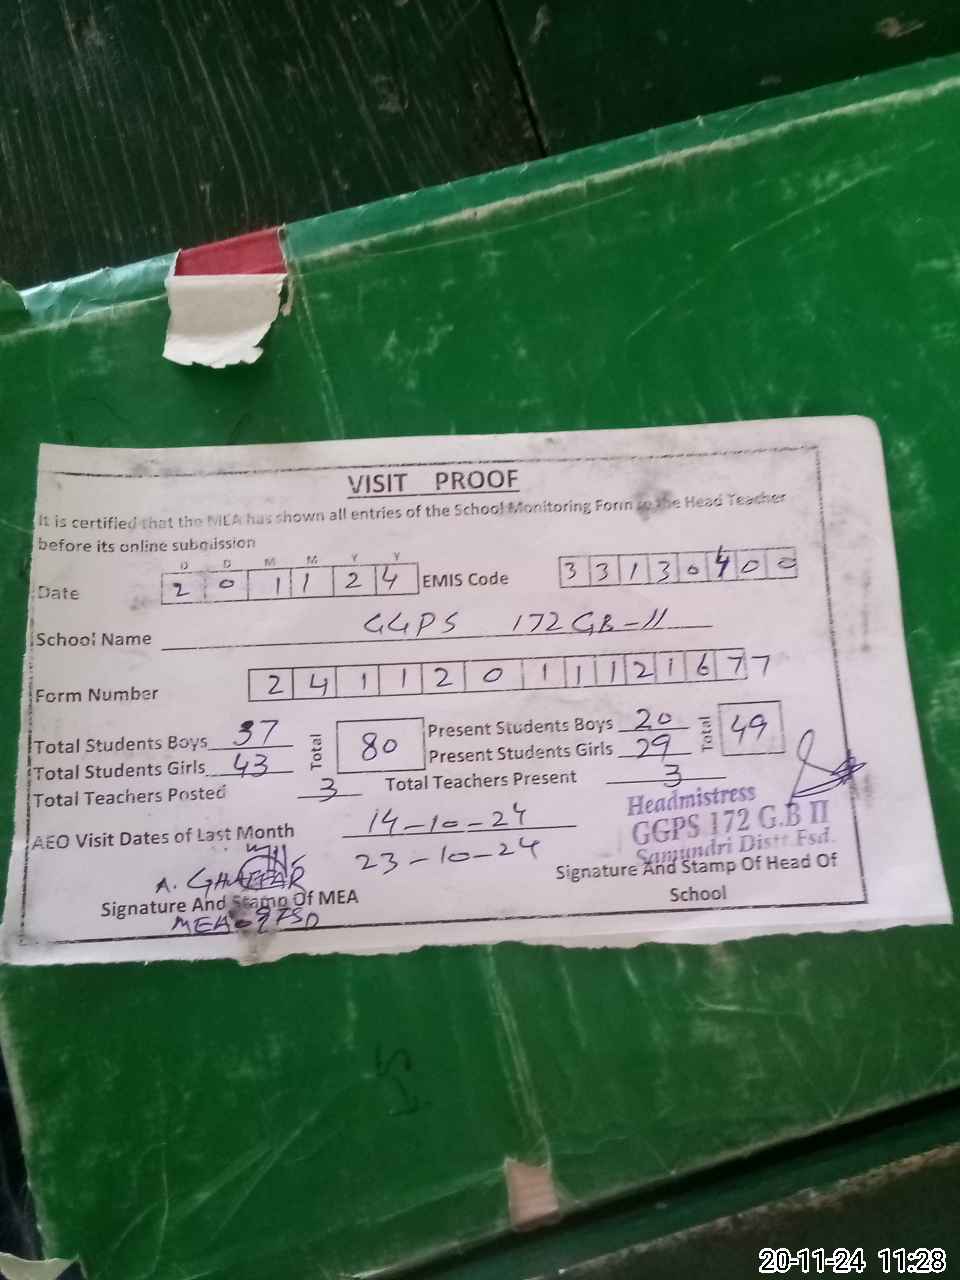 VISIT PROOF
It is certified that the MEA has shown all entries of the School Monitoring Form to the Head Teacher
before its online submission
D D M M Y Y
Date 2 0 1 1 2 4 EMIS Code 3 3 1 3 0 4 0 0
School Name GGPS 172 GB-II
Form Number 2 4 1 1 2 0 1 1 1 2 1 6 7 7
Total Students Boys 37 Total 80 Present Students Boys 20 Total 49
Total Students Girls 43 Present Students Girls 29
Total Teachers Posted 3 Total Teachers Present 3
AEO Visit Dates of Last Month 14-10-24
23-10-24
Headmistress
GGPS 172 G.B II
Samundri Distt Fsd.
A. GHAFFAR
Signature And Stamp Of MEA
Signature And Stamp Of Head Of
School
20-11-24 11:28